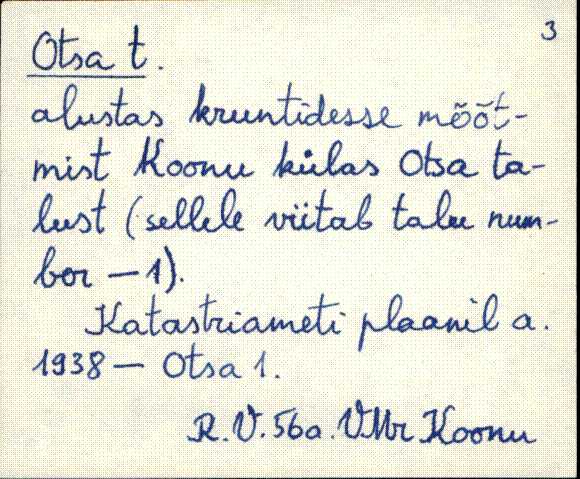 3
Otsa t.
alustas kruntidesse mõõt-
mist Koonu külas Otsa ta-
lust (sellele viitab talu num-
ber - 1).
Katastriameti plaanil a.
1938 - Otsa 1.
R.V. 56a. VMr Koonu